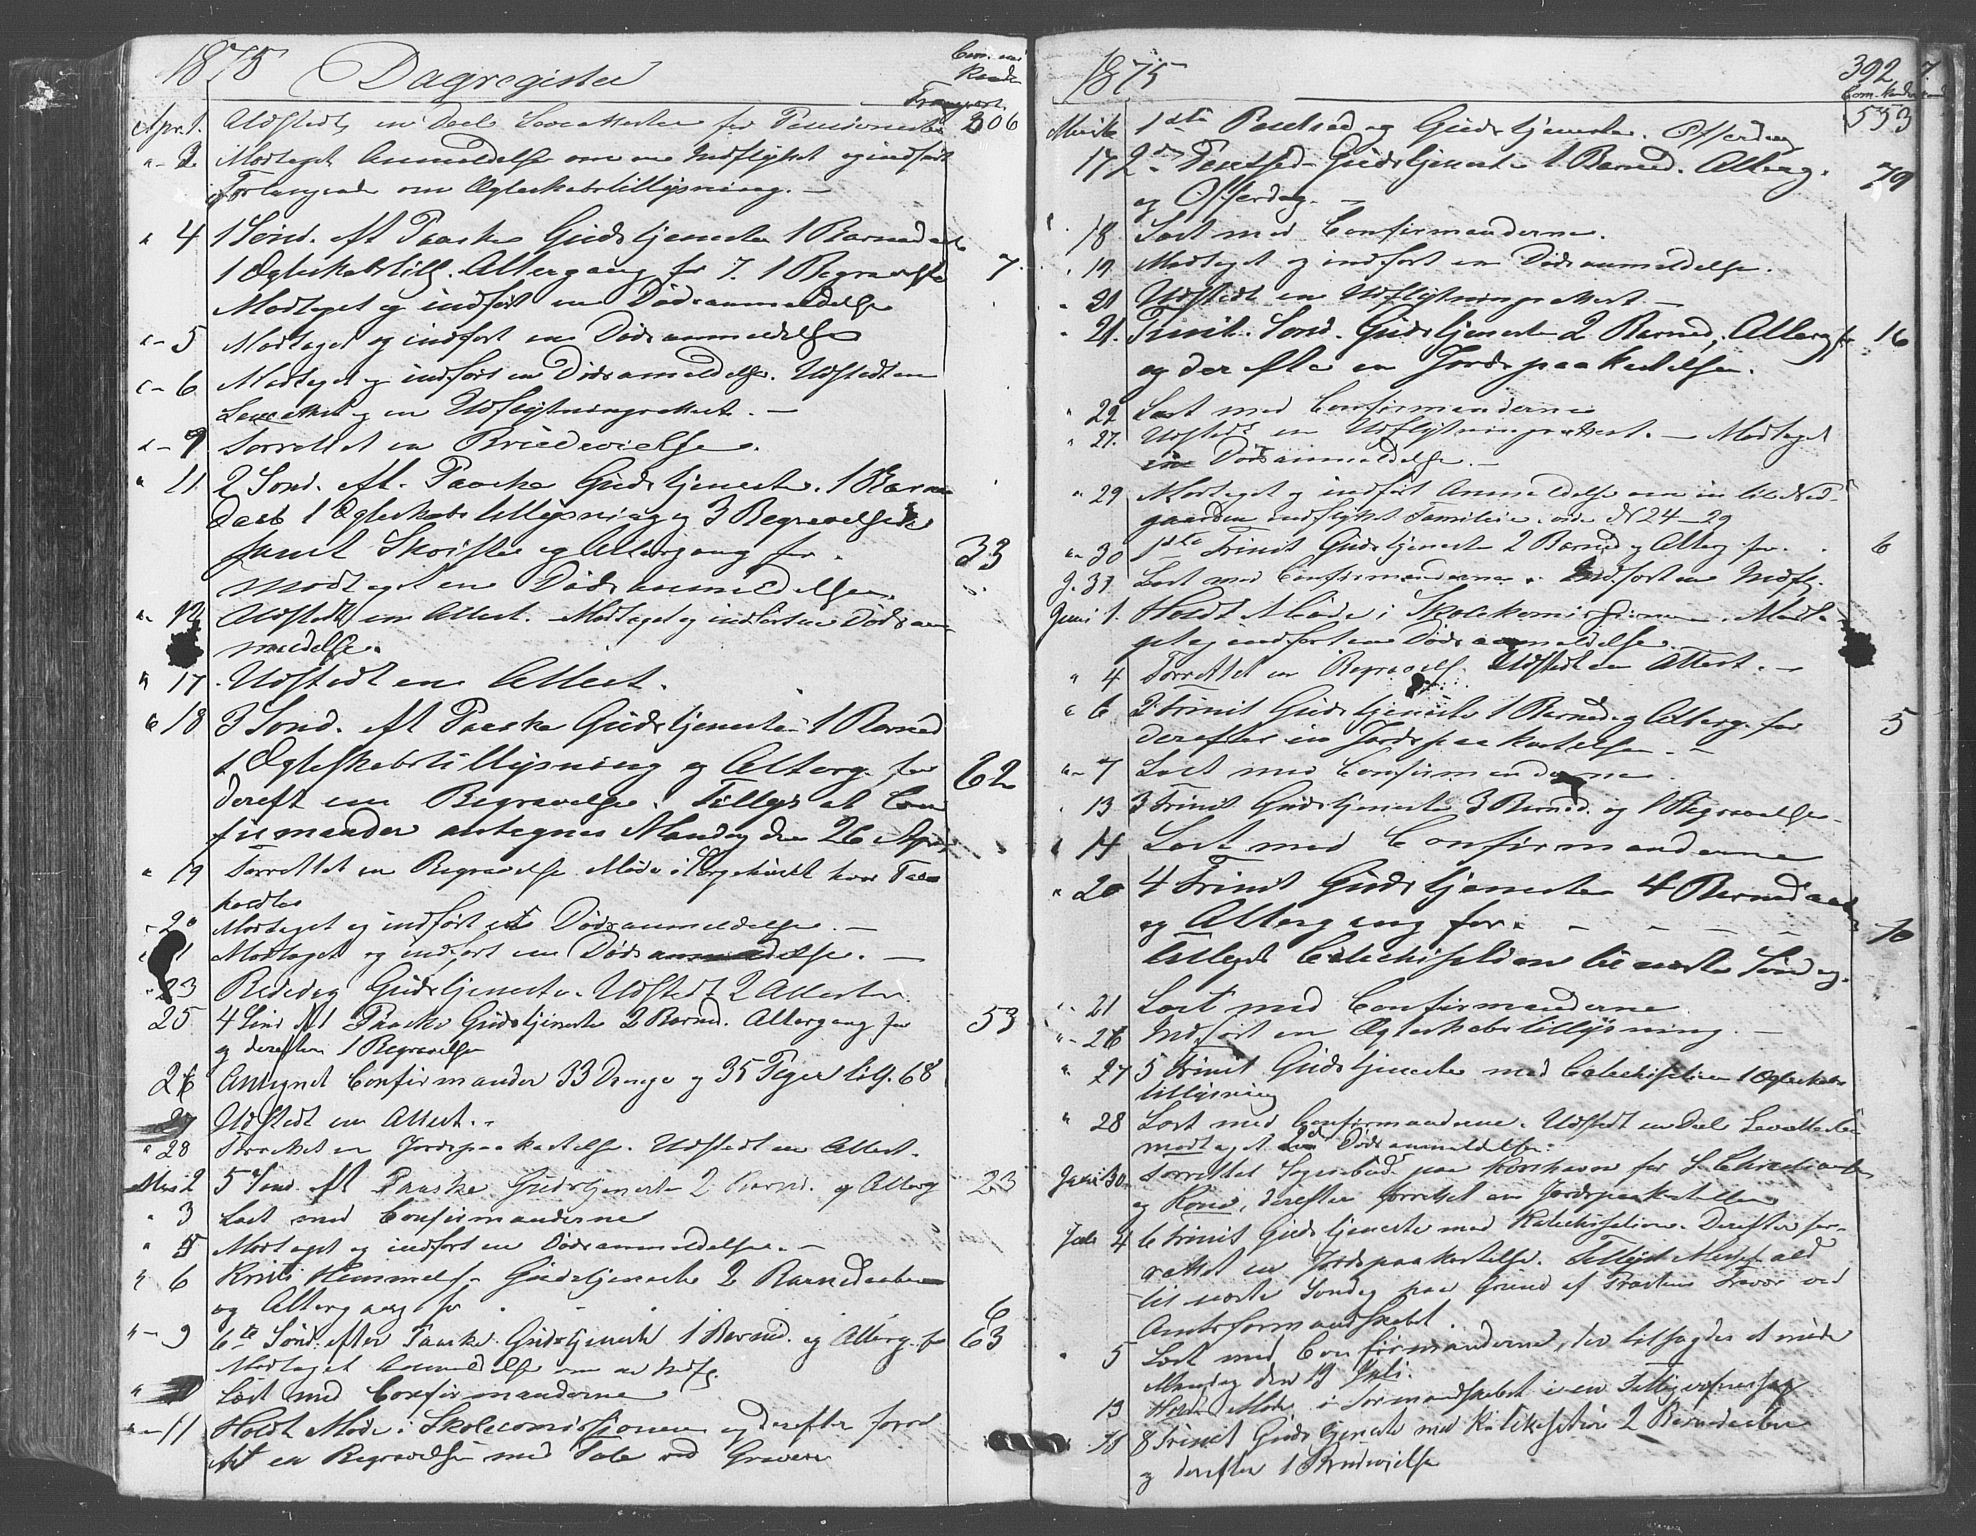 1875 Dagregister
Transport
Apr. 1. Udstedt en Deel Leveattester for Pensionister 306
" 2 Modtaget Anmeldelse om en Indflyttet og indført
Forlangende om Ægteskabstillysning. —
" 4 1 Sønd. eft Paaske Gudstjeneste 1 Barnedaab
1 Ægteskabstill. Altergang for 7. 1 Begravelse 7
Modtaget og indført en Dødsanmeldelse
" 5 Modtaget og indført en Dødsanmeldelse
" 6 Modtaget og indført en Dødsanmeldelse. Udstedt en
Leveattest og en Udflytningsattest. —
" 9 Forrettet en Brudevielse.
" 11. 2 Sønd. eft. Paaske Gudstjeneste. 1 Barne
daab 1 Ægteskabstillysning og 3 Begravelser
samt Skrifte og Altergang for. 33
Modtaget en Dødsanmeldelse.
" 12 Udstedt en Attest. Modtaget og indført en Dødsan
meldelse.
" 17 Udstedt en Attest.
" 18 3 Sønd. eft Paaske Gudstjeneste 1 Barned
1 Ægteskabstillysning og Alterg. for 62
dereft en Begravelse. Tillyst at Con
firmander antegnes Mandag den 26 April
" 19 Forrettet en Begravelse Møde i
holdtes
" 20 Modtaget og indført en Dødsanmeldelse. —
Modtaget og indført en Dødsanmeldelse. —
" 23 Bededag Gudstjeneste. Udstedt 2 Attester
25 4 Sønd eft Paaske Gudstjeneste 2 Barned. Altergang for 53
og derefter 1 Begravelse
26 Antegnet Confirmander 33 Drenge og 35 Piger tils. 68
27 Udstedt en Attest. —
" 28 Forrettet en Jordspaakastelse. Udstedt en Attest.
Mai 2 5 Sønd. eft Paaske Gudstjeneste 2 Barned. og Alterg 23
" 3 Læst med Confirmanderne
" 5 Modtaget og indført en Dødsanmeldelse. —
" 6 Kristi Himmelf. Gudstjeneste 2 Barnedaaber
og Altergang for 6
" 9 6te Sønd. efter Paaske Gudstjeneste 1 Barned. og Alterg. for 63
Modtaget Anmeldelse om en Indfl.
" Læst med Confirmanderne
" 11 Holdt Møde i Skolecomissionen og derefter forret
tet en Begravelse med Tale ved Graven
1875 392
1ste Pintsed og Gudstjeneste. Offerdag 553
17 2den Pintsed Gudstjeneste 1 Barned. Alterg. 79
og Offerdag. —
18 Læst med Confirmanderne.
19 Modtaget og indført en Dødsanmeldelse.
" 21 Udstedt en Udflytningsattest —
" 21. Trinit. Sønd. Gudstjeneste 2 Barned, Alterg for 16
og derefter en Jordspaakastelse.
" 22 Læst med Confirmanderne
" 27. Udstedt en Udflytningsattest. — Modtaget
en Dødsanmeldelse. —
" 29 Modtaget og indført Anmeldelse om en til Ned-
gaarden indflyttet Familie. vide N 24–29
" 30 1ste Trinit Gudstjeneste 2 Barned og Alterg. for. 6
31 Læst med Confirmanderne. Indført en Indfl.
Juni 1. Holdt Møde i Skolekomissionen. Modta
get og indført en Dødsanmeldelse.
" 4 Forrettet en Begravelse. Udstedt en Attest. —
" 6 2 Trinit Gudstjeneste 1 Barned. og Alterg. for 5
derefter en Jordspaakastelse. —
" 7 Læst med Confirmanderne
" 13 3 Trinit Gudstjeneste 3 Barned. og 1 Begravelse.
" 14 Læst med Confirmanderne
" 20 4 Trinit Gudstjeneste 4 Barnedaab
og Altergang for. — — — — — 10
Tillyst Catechisation til næste Søndag.
" 21 Læst med Confirmanderne
" 26 Indført en Ægteskabstillysning. —
" 27 5 Trinit Gudstjeneste med Catechisation 1 Ægteskabs
tillysning
" 28 Læst med Confirmanderne. Udstedt en Deel Leveattester
modtaget Dødsanmeldelse.
Juni 30. Forrettet Sognebud paa for
og Kone, derefter forrettet en Jordspaakastelse
Juli 4 6 Trinit Gudstjeneste med Katechisation. Derefter for-
rettet en Jordspaakastelse. Tillyst Messefald
til næste Søndag paa Grund af Præstens Fravær ved
Amtsformandskabet.
" 5 Læst med Confirmanderne, der tilsagdes at møde
Mandag den 19 Juli.
13 Holdt Møde i Formandskabet i en
18 8 Trinit Gudstjeneste med Katekisation 2 Barnedaaber
og derefter 1 Brudevielse